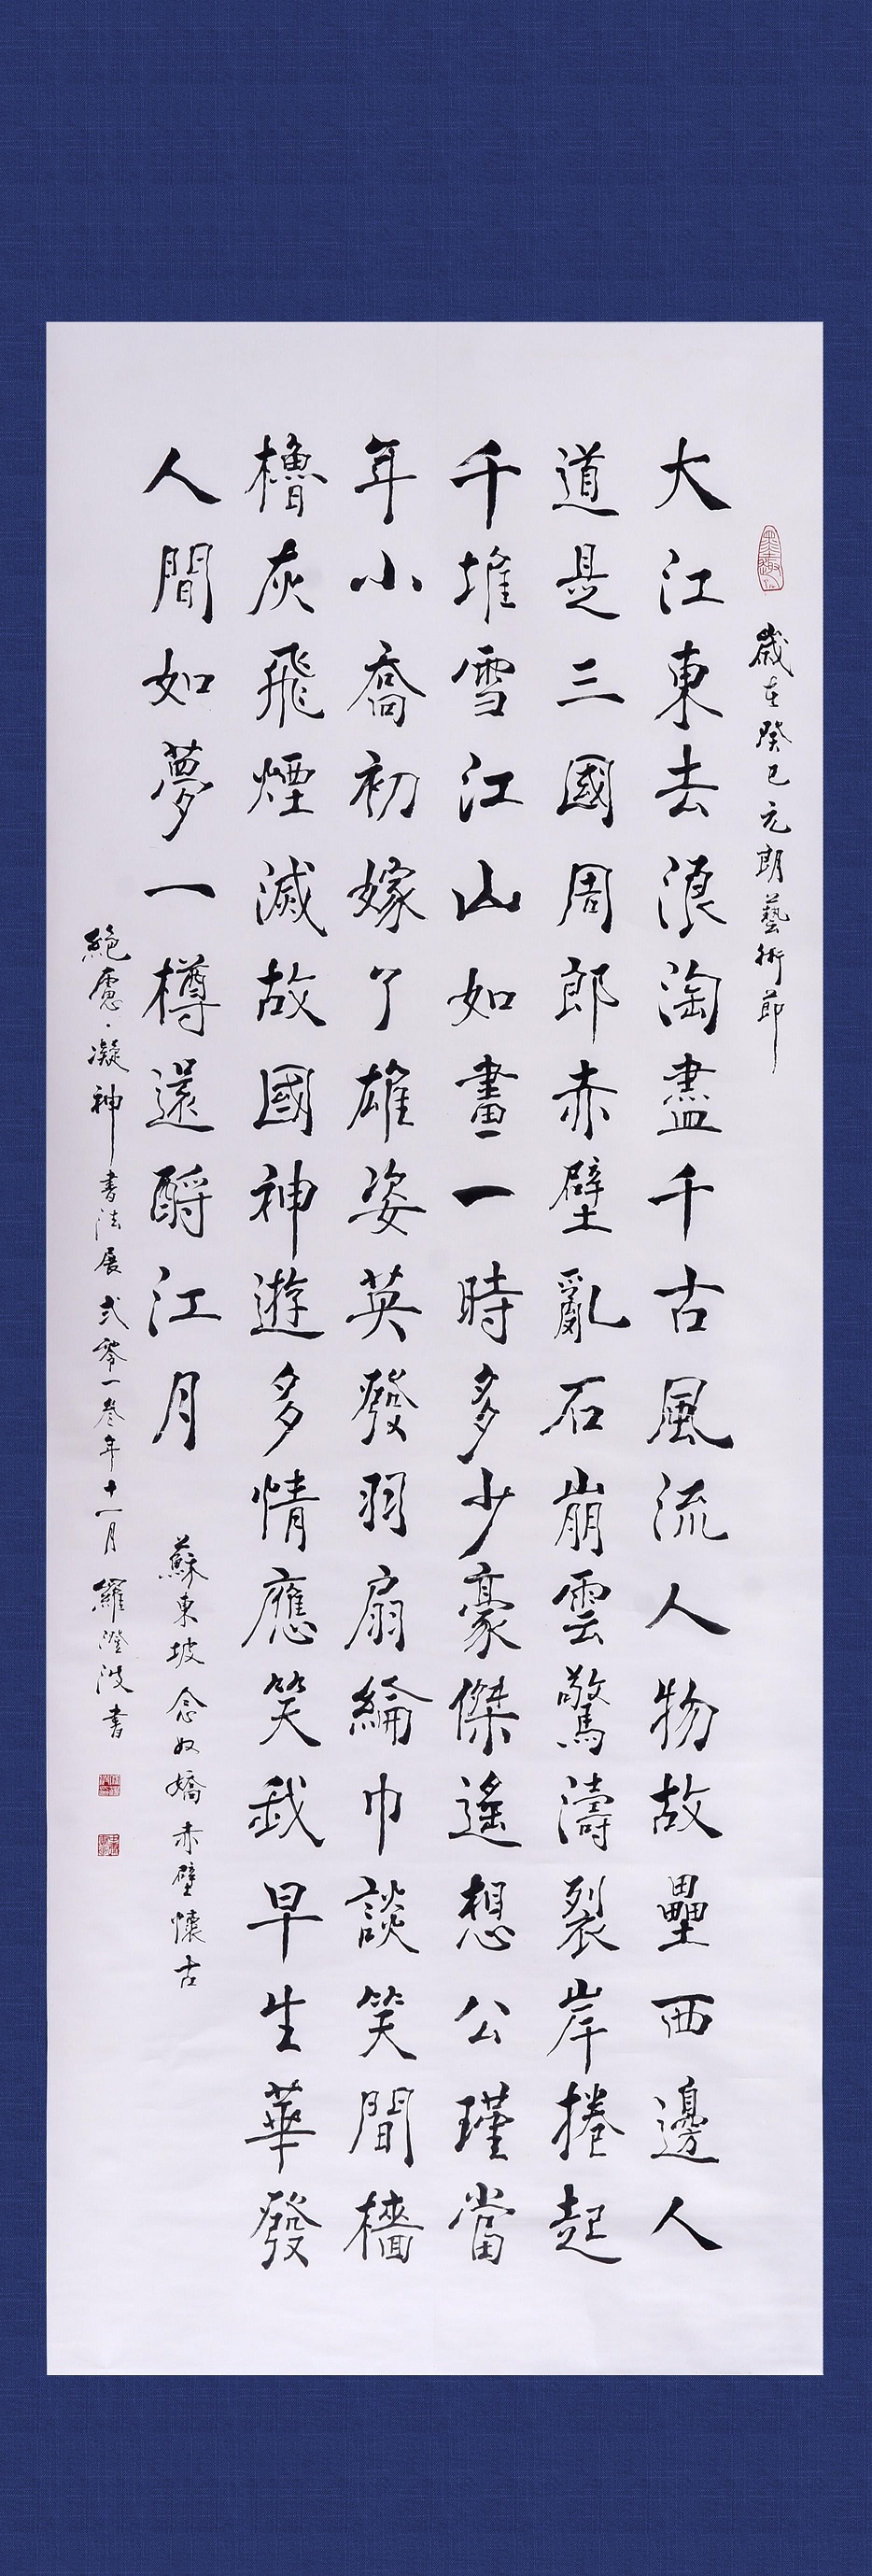 歲在癸巳元朗藝術節
大江東去浪淘盡千古風流人物故壘西邊人
道是三國周郎赤壁亂石崩雲驚濤裂岸捲起
千堆雪江山如畫一時多少豪傑遙想公瑾當
年小喬初嫁了雄姿英發羽扇綸巾談笑間檣
櫓灰飛煙滅故國神遊多情應笑我早生華發
人間如夢一樽還酹江月
蘇東坡念奴嬌赤壁懷古
絕慮·凝神書法展弍零一叁年十一月羅澄波書